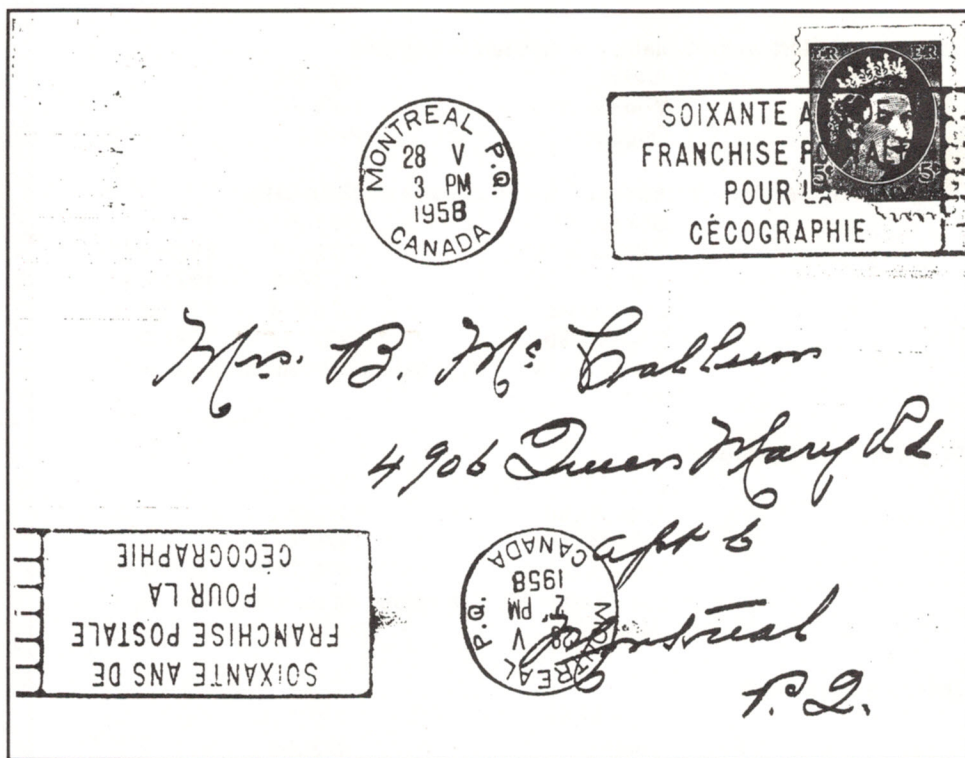 E R E R
5c 5c
MONTREAL P.Q.
28 V
3 PM
1958
CANADA
SOIXANTE A
FRANCHISE POSTALE
POUR LA
CÉCOGRAPHIE
Mrs. B. Mc
4906 Queen Mary Rd
apt 6
Montreal
P.Q.
SOIXANTE ANS DE
FRANCHISE POSTALE
POUR LA
CÉCOGRAPHIE
MONTREAL P.Q.
28 V
PM
1958
CANADA